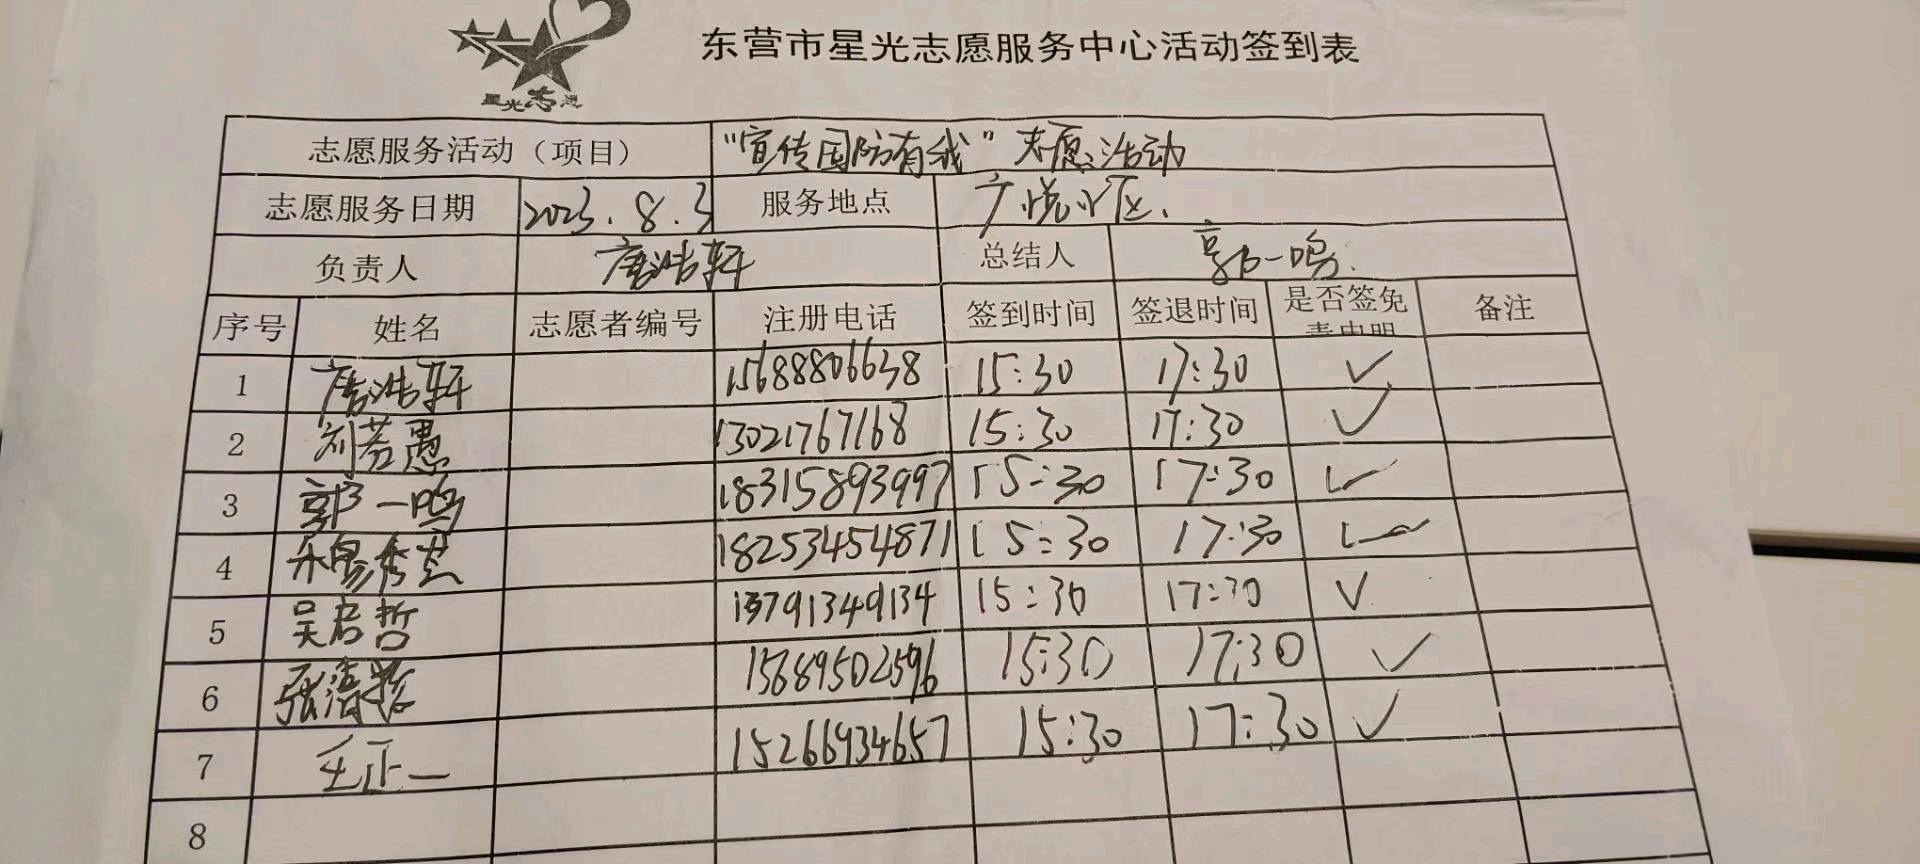 东营市星光志愿服务中心活动签到表
星光志愿
志愿服务活动（项目） “宣传国防有我”志愿活动
志愿服务日期 2023.8.3 服务地点 广悦小区.
负责人 唐浩轩 总结人 郭一鸣.
序号 姓名 志愿者编号 注册电话 签到时间 签退时间 是否签免责申明 备注
1 唐浩轩 15688806638 15:30 17:30 ✓
2 刘若愚 13021767168 15:30 17:30 ✓
3 郭一鸣 18315893997 15:30 17:30 ✓
4 18253454871 15:30 17:30 ✓
5 吴启哲 13791349134 15:30 17:30 ✓
6 张清 15689502596 15:30 17:30 ✓
7 王正一 15266934657 15:30 17:30 ✓
8